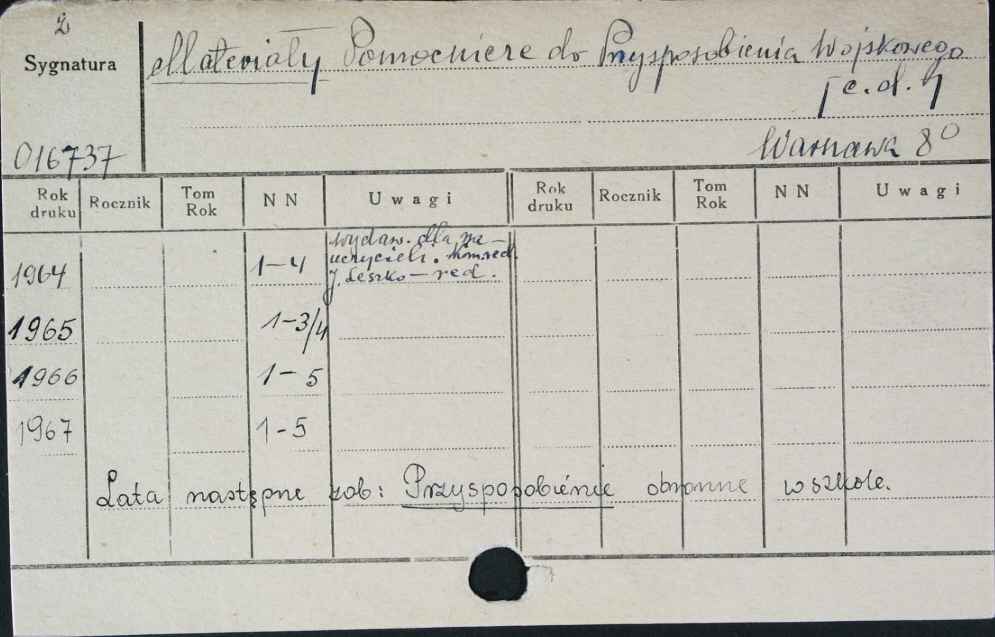 2
Sygnatura
Materiały Pomocnicze do Przysposobienia Wojskowego
[c.d.]
016737
Warszawa 8°
Rok druku Rocznik Tom Rok NN Uwagi Rok druku Rocznik Tom Rok NN Uwagi
wydaw. dla na-
1964 1-4 uczycieli. Kom.red.
J. Leszko - red.
1965 1-3/4
1966 1-5
1967 1-5
Lata następne zob: Przysposobienie obronne w szkole.